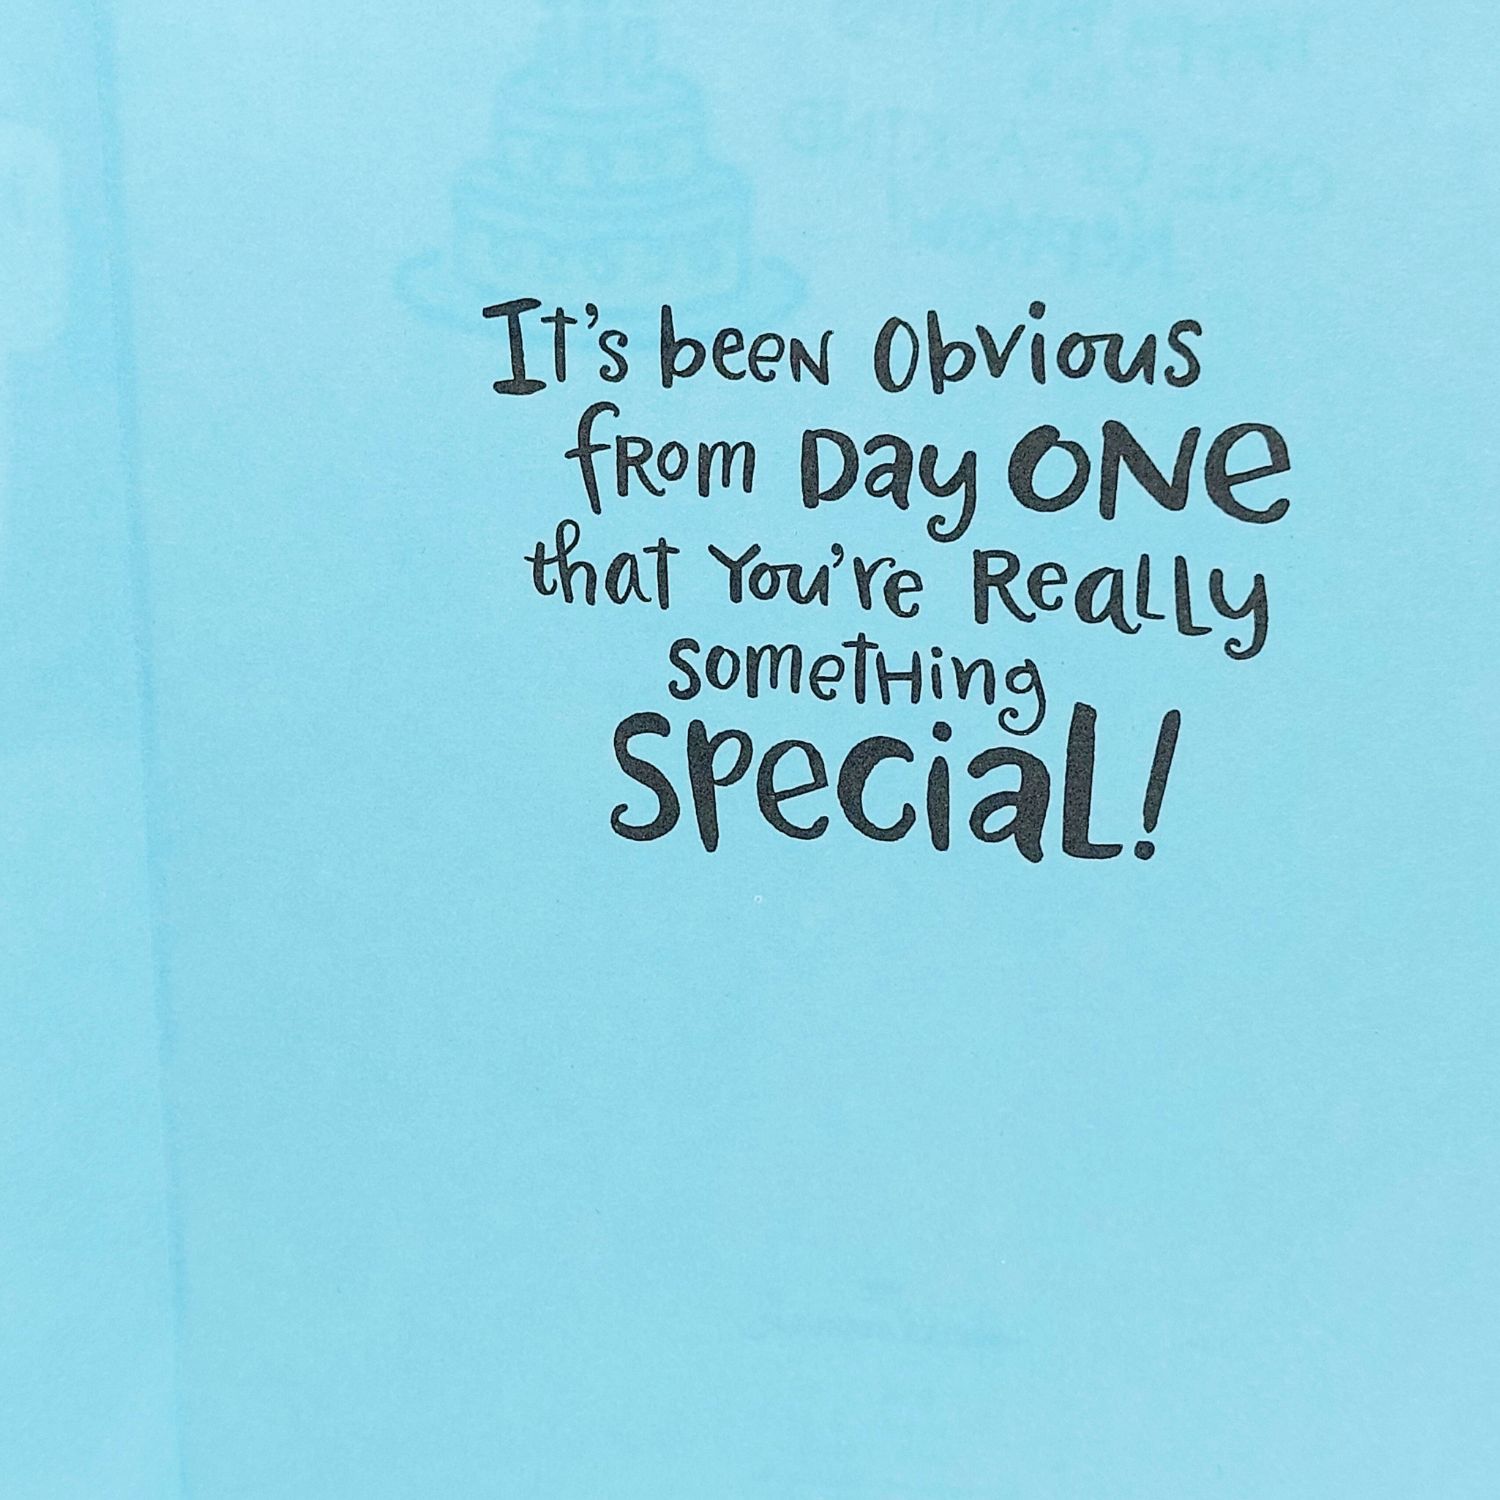 It's been Obvious
from Day ONe
that You're Really
something
Special!